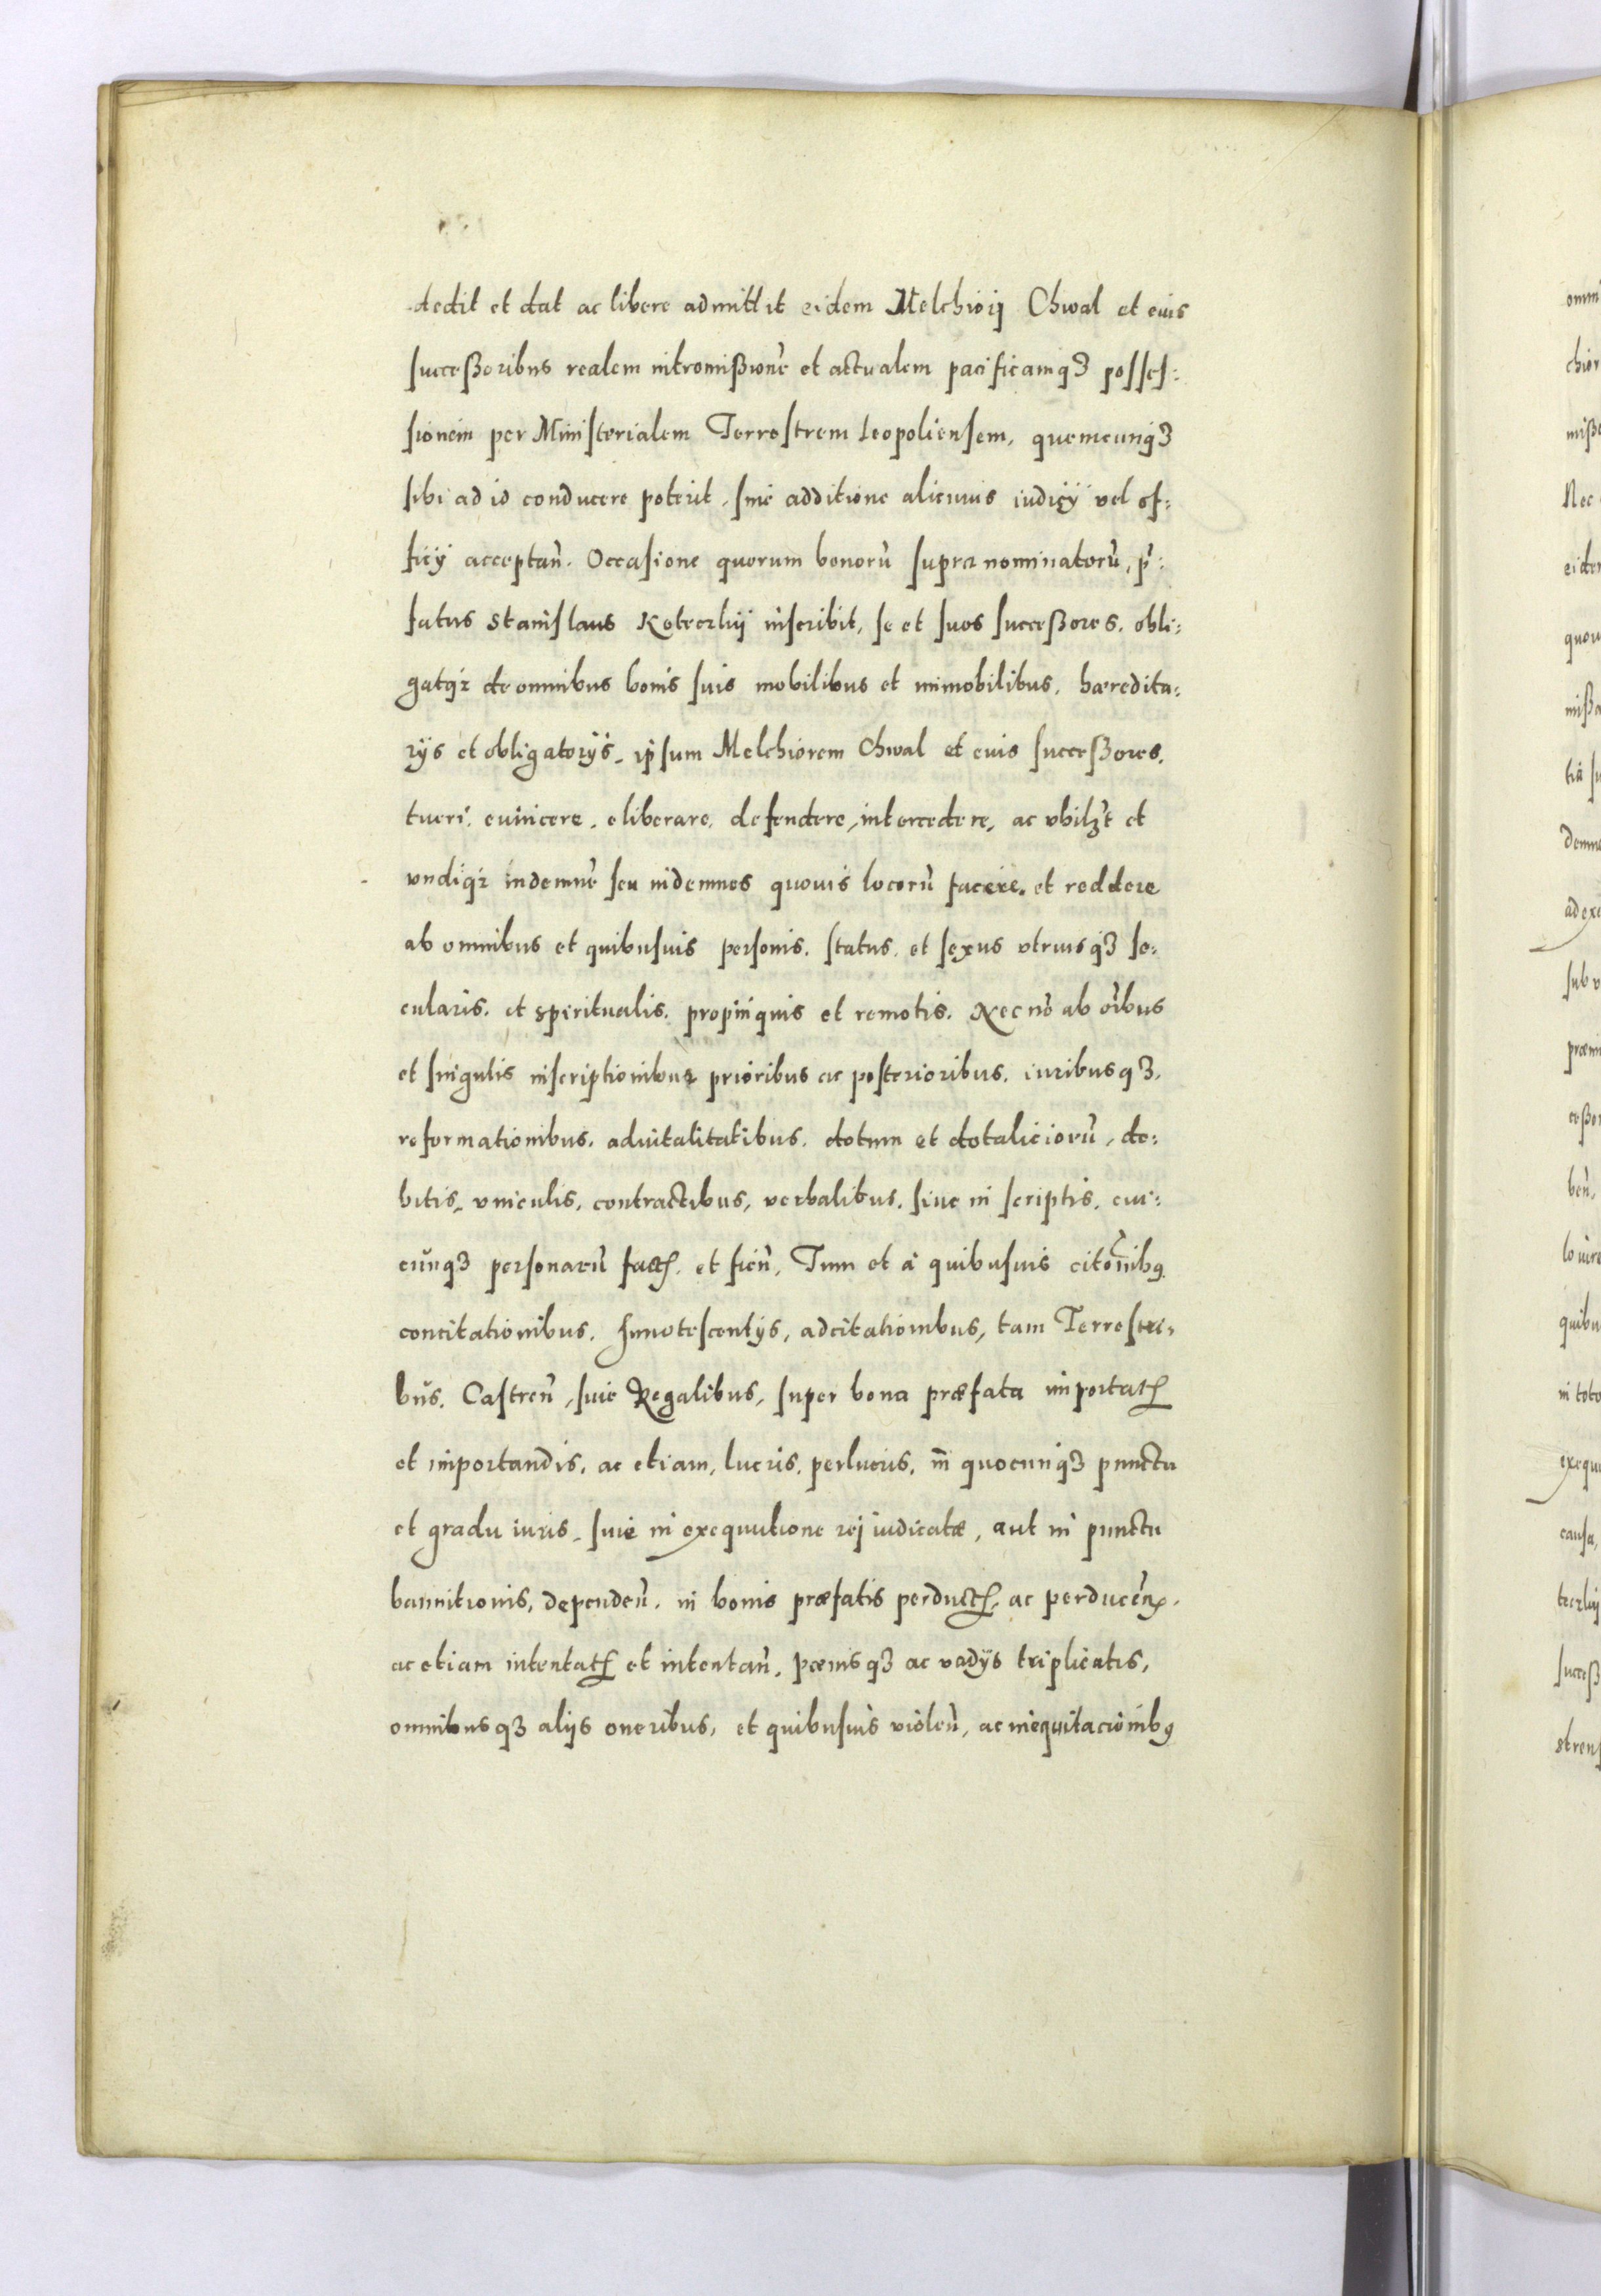 dedit et dat ac libere admittit eidem Melchiorj Chwal et eius
succeßoribus realem intromißionē et actualem pacificamqꝫ posses:
sionem per Ministerialem Terrestrem Leopoliensem, quemcunqꝫ
sibi ad id conducere poterit, sine additione alicuius iudicÿ vel of:
ficÿ acceptañ. Occasione quorum bonorũ supra nominatorũ, p̃:
fatus Stanislaus Koteczkij inscribit, se et suos succeßores, obli:
gatqꝫ de omnibus bonis suis mobilibus et immobilibus, hæredita:
rÿs et obligatorÿs, ipsum Melchiorem Chwal et euis succeßores,
tueri, euincere, eliberare, defendere, intercedere, ac vbilꝫt et
vndiqꝫ indemnẽ seu indemnes quouis locorũ facere, et reddere
ab omnibus et quibusuis personis, status, et sexus vtriusqꝫ se:
cularis, et spiritualis, propinquis et remotis. Nec nõ ab oĩbus
et singulis inscriptionibus prioribus ac posterioribus, iuribusqꝫ,
reformationibus, aduitalitatibus, dotum et dotaliciorũ, de:
bitis, vniculis, contractibus, verbalibus, siue in scriptis, cui:
cũnqꝫ personarũ factꝭ, et fieñ, Tum et à quibusuis citõnibꝰ
concitationibus, Innotescentÿs, adcitationibus, tam Terrestri,
bus, Castreñ, siue Regalibus, super bona præfata importatꝭ
et importandis, ac etiam, lucris, perlucris, in quocunqꝫ punctu
et gradu iuris, siue in exequutione rej iudicatæ, aut in punctu
bannitionis, dependeñ, in bonis præfatis perductꝭ, ac perduceñ,
ac etiam intentatꝭ et intentañ, pœnisqꝫ ac vadÿs triplicatis,
omnibusqꝫ alijs oneribus, et quibusuis violeñ, ac inequitacionibꝰ